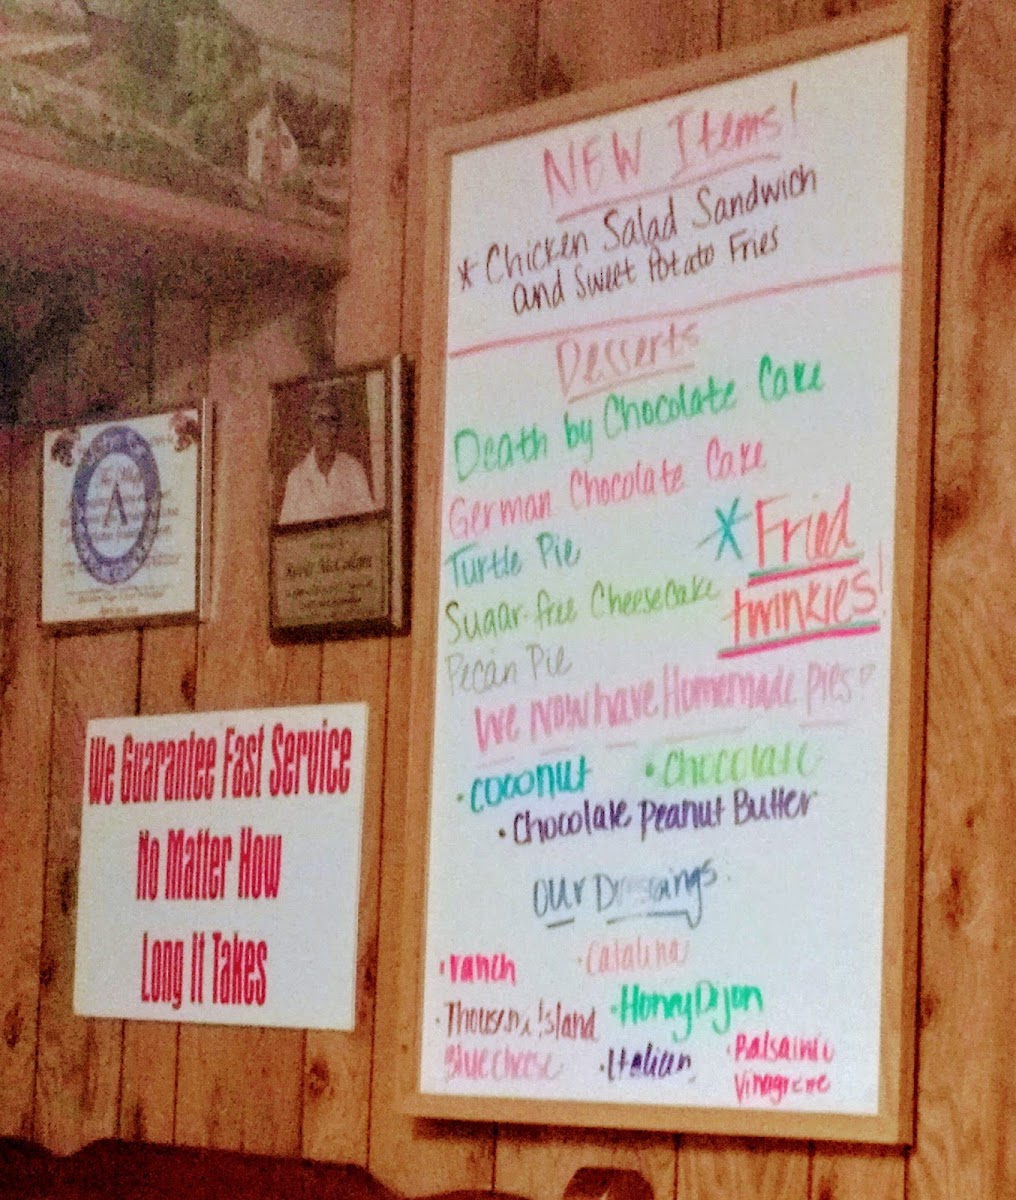 NEW Items!
* Chicken Salad Sandwich
and Sweet Potato Fries
Desserts
Death by Chocolate Cake
German Chocolate Cake
Turtle Pie
Sugar-free Cheesecake
Pecan Pie
* Fried
twinkies!
We NOW have Homemade Pies
• Coconut • Chocolate
• Chocolate Peanut Butter
Our Dressings
• ranch • Catalina
• Thousand Island • Honey Dijon
Blue cheese • Italian • Balsamic
Vinagrette
We Guarantee Fast Service
No Matter How
Long It Takes